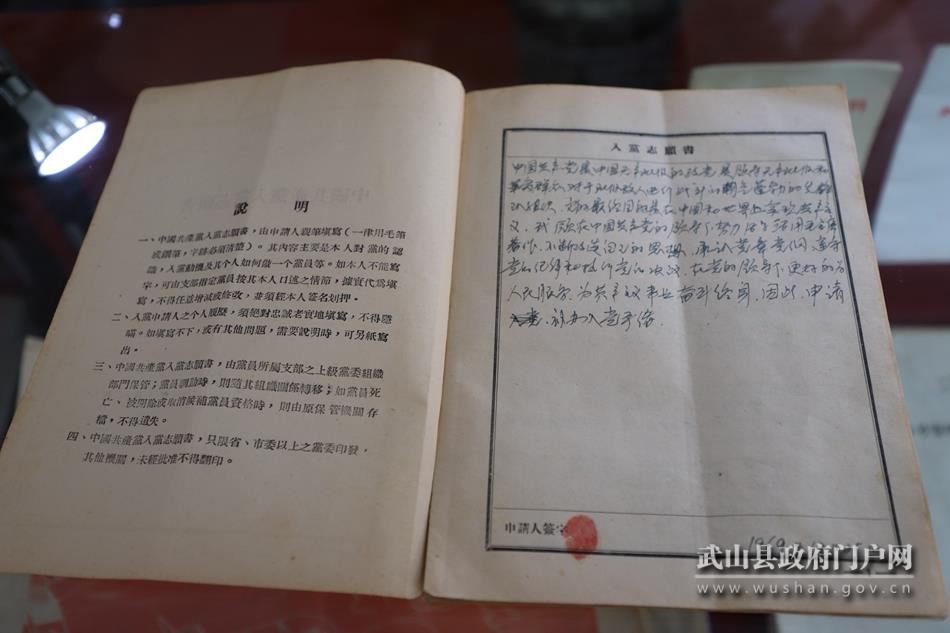 說 明
一、中國共產黨入黨志願書，由申請人親筆填寫（一律用毛筆
或鋼筆，字跡必須清楚）。其內容主要是本人對黨的認
識，入黨動機及其个人如何做一个黨員等。如本人不能寫
字，可由支部指定黨員按其本人口述之情節，據實代爲填
寫，不得任意增減或修改，並須經本人簽名划押。
二、入黨申請人之个人履歷，須絕對忠誠老實地填寫，不得隱
瞞。如填寫不下，或有其他問題，需要說明時，可另紙寫
出。
三、中國共產黨入黨志願書，由黨員所屬支部之上級黨委組織
部門保管；黨員調動時，則隨其組織關係轉移；如黨員死
亡、被開除或取消候補黨員資格時，則由原保管機關存
檔，不得遺失。
四、中國共產黨入黨志願書，只限省、市委以上之黨委印發，
其他機關，未經批准不得翻印。
入黨志願書
中国共产党是中国无产阶级的政党是领导无产阶级和
革命群众对于阶级敌人进行战斗的朝气蓬勃的先锋
队组织。党的最终目的是在中国和世界上实现共产主
义，我愿在中国共产党的领导下努力学习活用毛主席
著作，不断改造自己的思想，承认党章党纲，遵守
党的纪律和执行党的决议，在党的领导下更好的为
人民服务，为共产主义事业奋斗终身，因此，申请
入党，
申請人簽字
1969.
武山县政府门户网
www.wushan.gov.cn